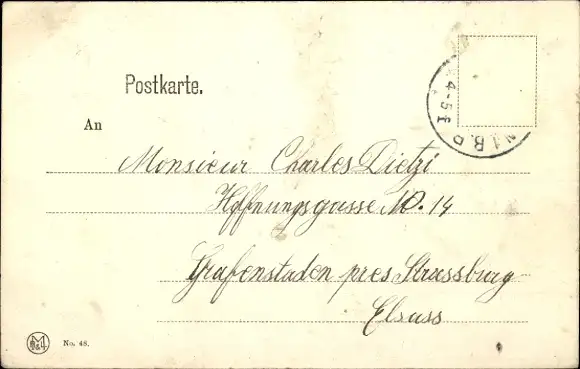 Postkarte.
4-5
N.1.B.
An
Monsieur Charles Dietzi
Hoffnungsgasse No. 14
Grafenstaden pres Strassburg
Elsass
No. 48.